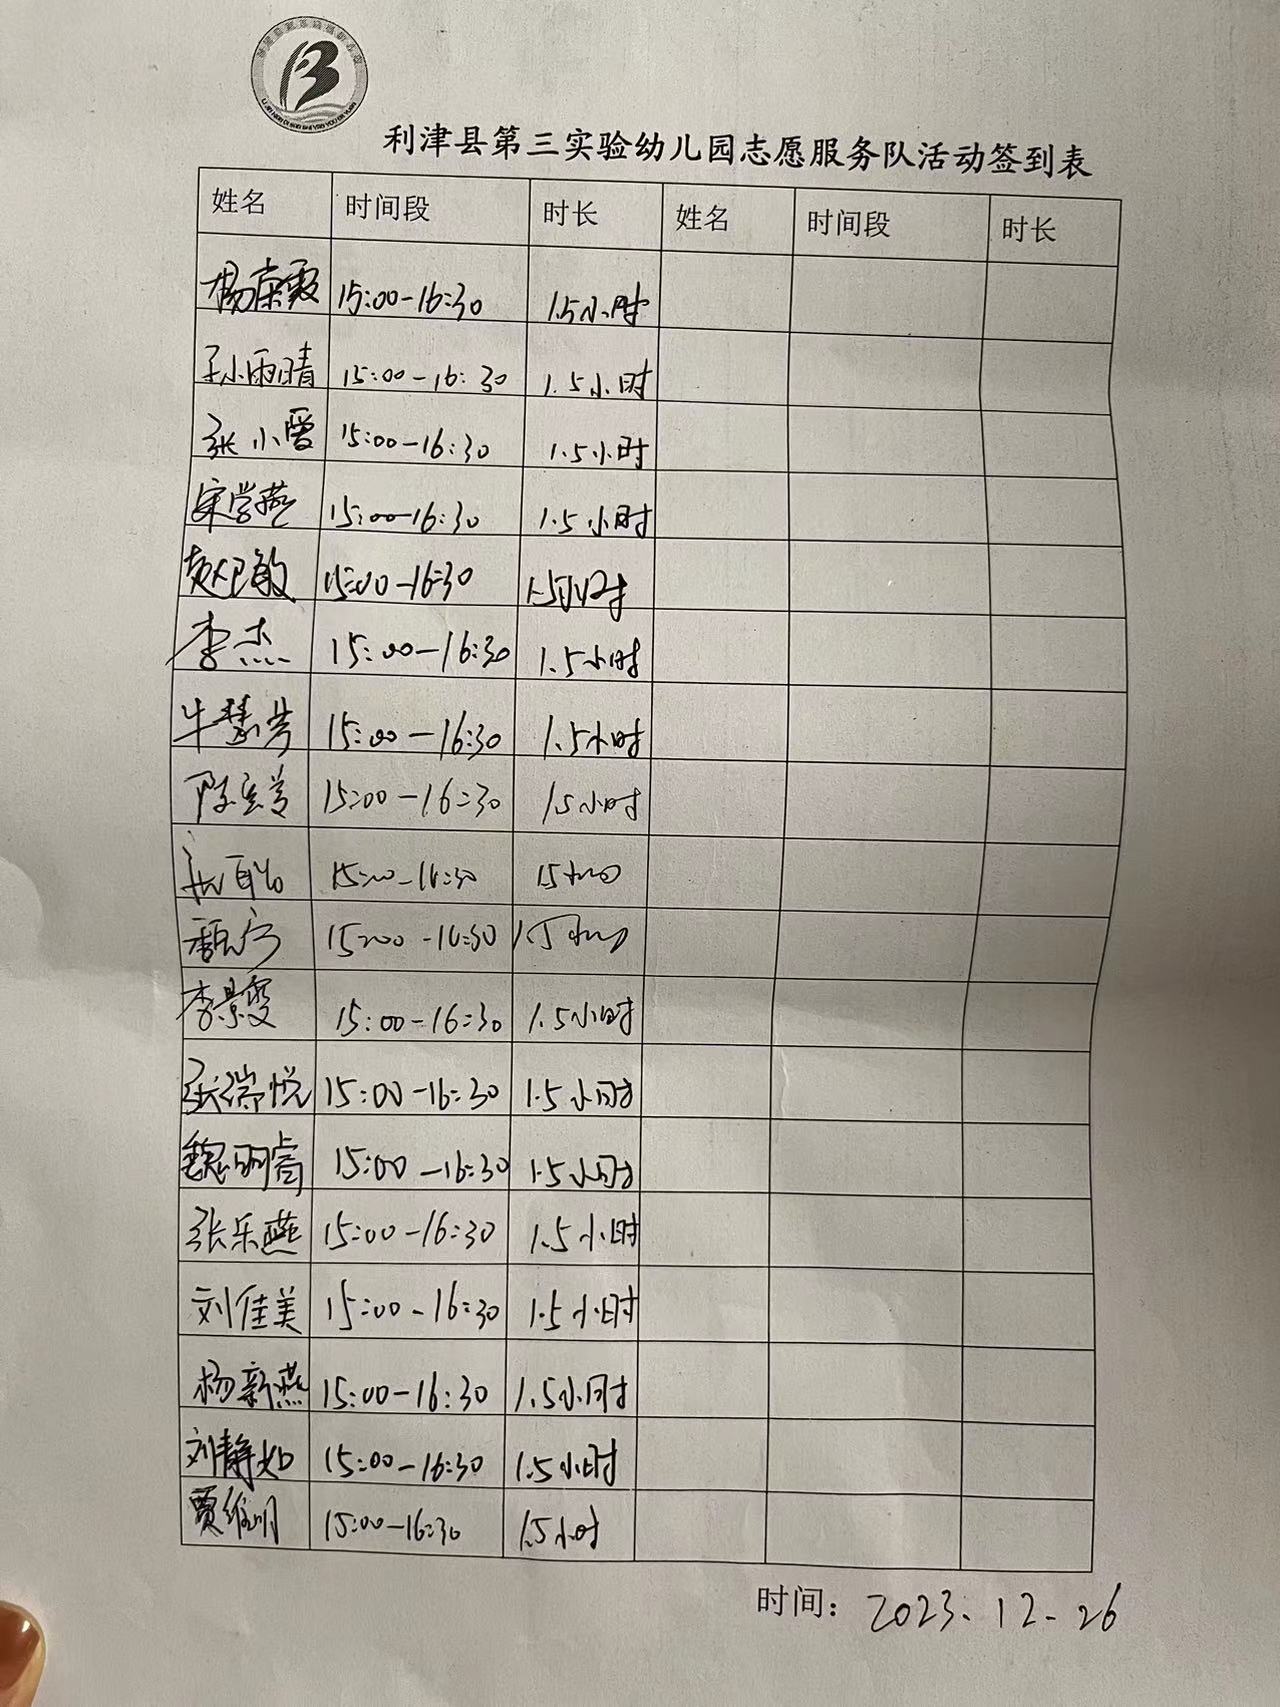 利津县第三实验幼儿园志愿服务队活动签到表
姓名 时间段 时长 姓名 时间段 时长
杨荣霞 15:00-16:30 1.5小时
孙雨晴 15:00-16:30 1.5小时
张小雪 15:00-16:30 1.5小时
宋学燕 15:00-16:30 1.5小时
15:00-16:30 1.5小时
李杰 15:00-16:30 1.5小时
牛慧芳 15:00-16:30 1.5小时
15:00-16:30 1.5小时
15:00-16:30 1.5小时
15:00-16:30 1.5小时
李景雯 15:00-16:30 1.5小时
张瑞悦 15:00-16:30 1.5小时
魏明睿 15:00-16:30 1.5小时
张乐燕 15:00-16:30 1.5小时
刘佳美 15:00-16:30 1.5小时
杨新燕 15:00-16:30 1.5小时
刘静如 15:00-16:30 1.5小时
贾维明 15:00-16:30 1.5小时
时间：2023.12.26